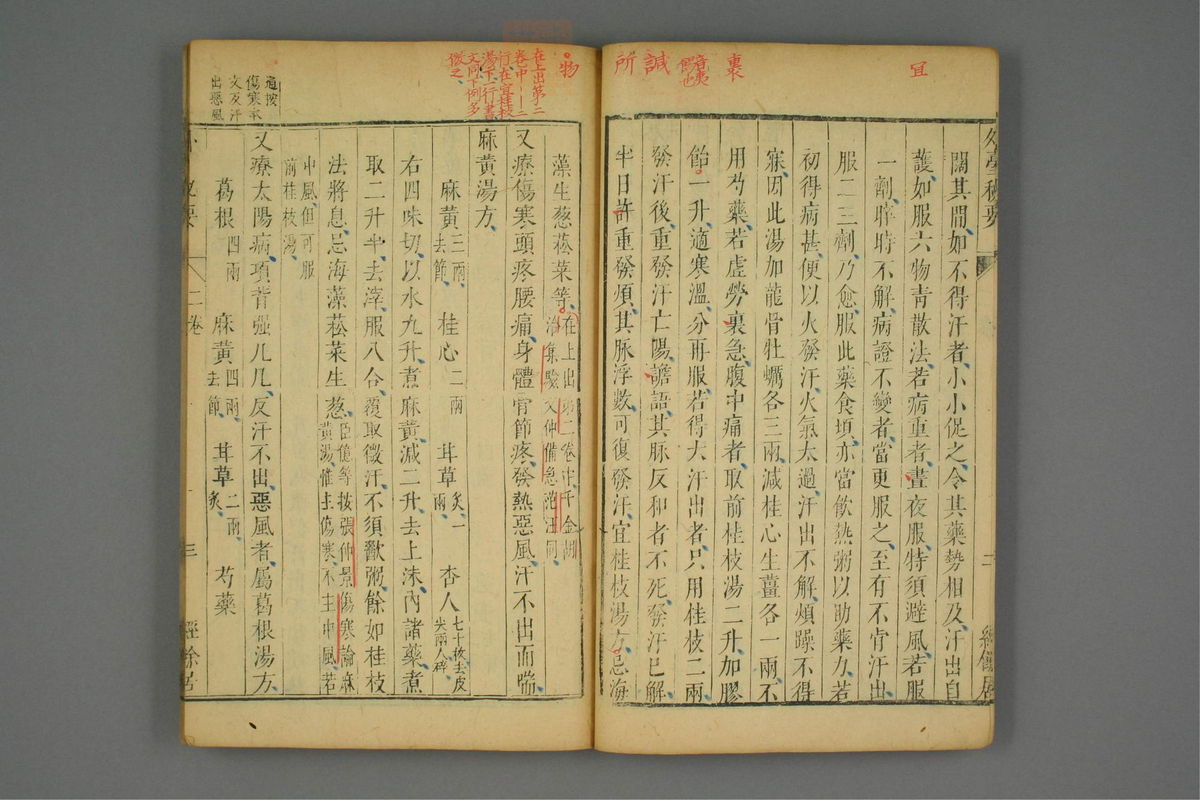 宜
裏
音夷
誠
所
闊其間如不得汗者小小促之令其藥勢相及汗出自
護如服六物青散法若病重者晝夜服特須避風若服
一劑晬時不解病證不變者當更服之至有不肯汗出
服二三劑乃愈服此藥食頃亦當飲熱粥以助藥力若
初得病甚便以火發汗火氣太過汗出不解煩躁不得
寐因此湯加龍骨牡蠣各三兩減桂心生薑各一兩不
用芍藥若虛勞裏急腹中痛者取前桂枝湯二升加膠
飴一升適寒溫分再服若得大汗出者只用桂枝二兩
發汗後重發汗亡陽譫語其脉反和者不死發汗已解
半日許重發煩其脉浮數可復發汗宜桂枝湯方忌海
外臺秘要
二
經餘居
物
在上出第二
卷中
行在宜桂枝
湯下行書
文同下例多
倣之
藻生葱菘菜等在上出第二卷中千金
治集驗文仲備急范汪同
又療傷寒頭疼腰痛身體骨節疼發熱惡風汗不出而喘
麻黃湯方
麻黃三兩去節 桂心二兩 甘草炙一兩 杏人七十枚去皮尖兩人碎
右四味切以水九升煮麻黃減二升去上沫內諸藥煮
取二升半去滓服八合覆取微汗不須歠粥餘如桂枝
法將息忌海藻菘菜生葱臣億等按張仲景傷寒論麻
黃湯惟主傷寒不主中風若
中風但可服
前桂枝湯
又療太陽病項背强几几反汗不出惡風者屬葛根湯方
葛根四兩 麻黃四兩去節 甘草二兩炙 芍藥
二卷
三
經餘居
通按
傷寒
文反汗
出惡風